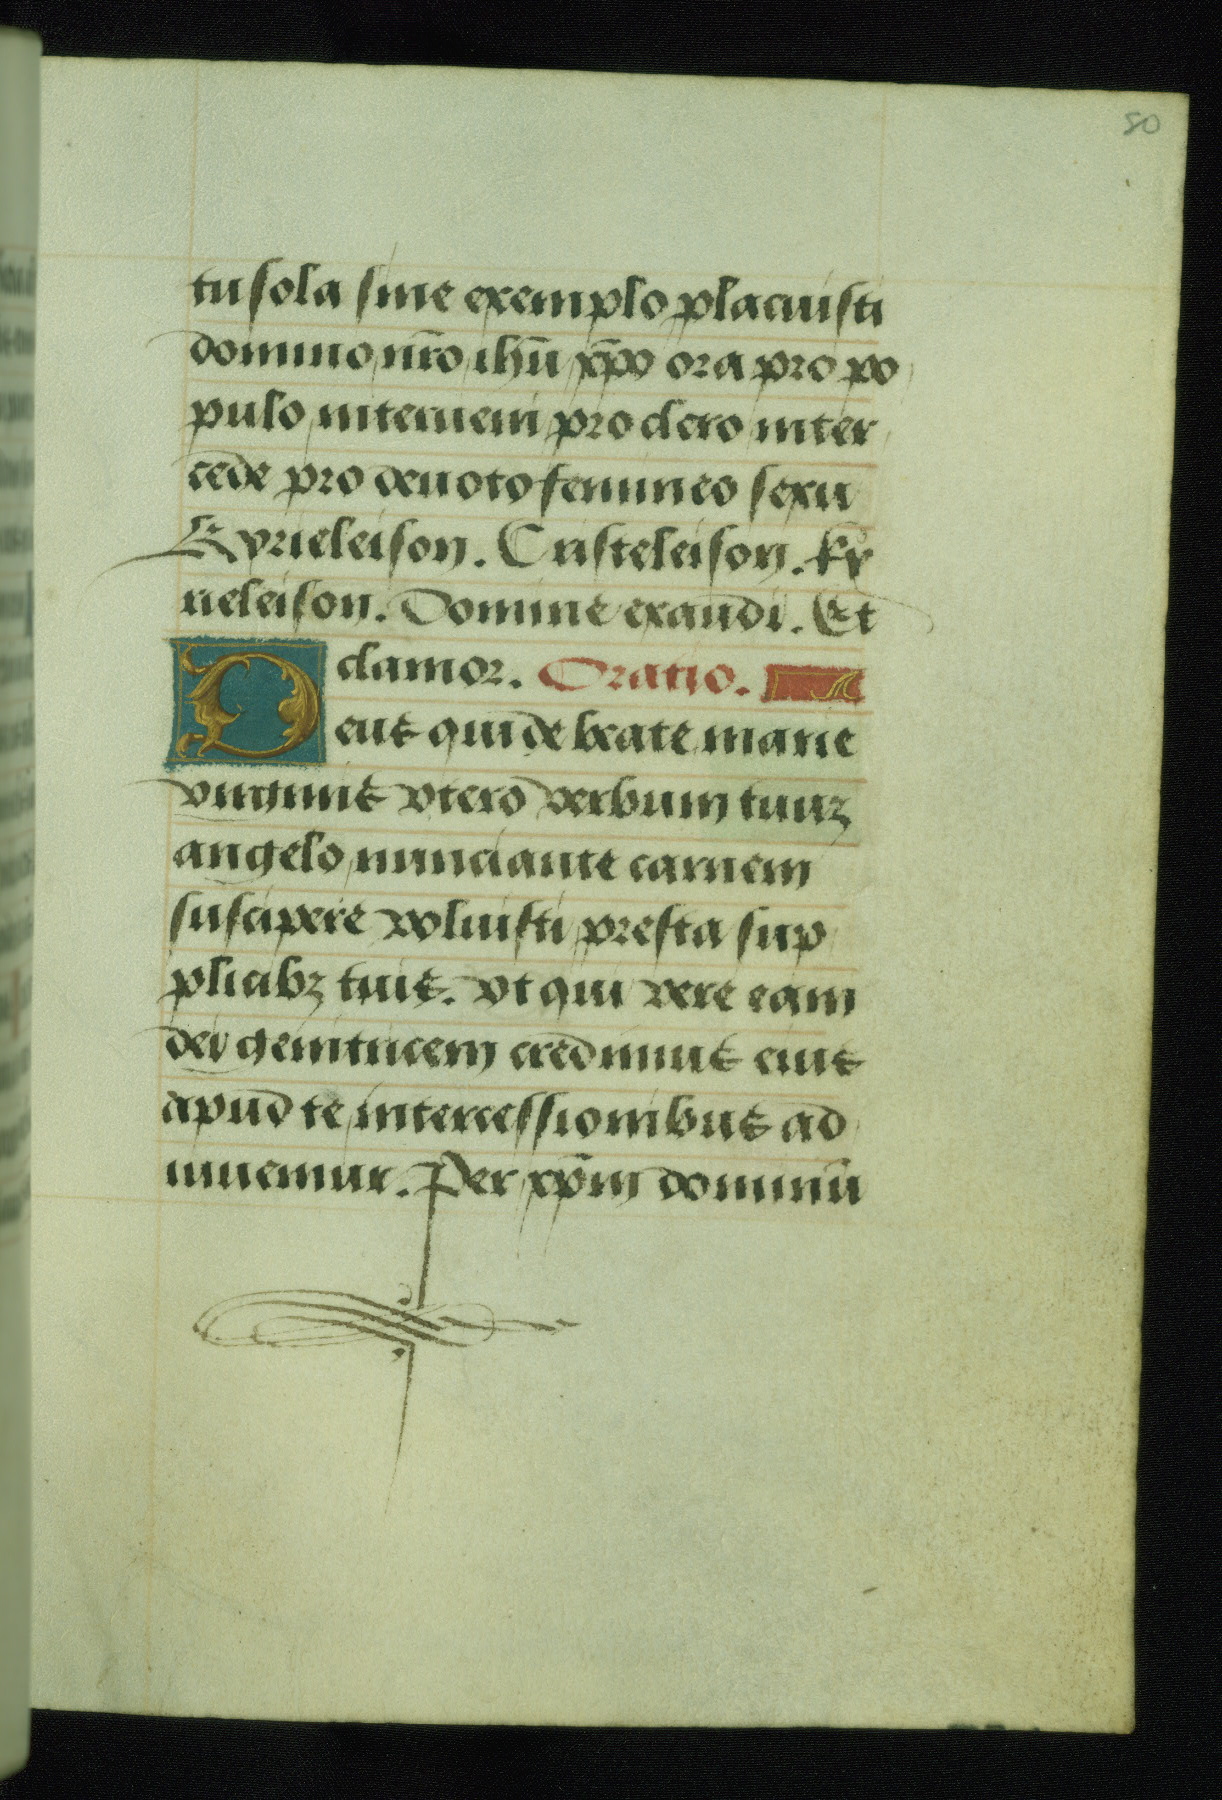 50
tu sola sine exemplo placuisti
domino nr̄o ihū xp̄o ora pro po
pulo interueni pro clero inter
cede pro deuoto femineo sexu
Kyrieleison. Cristeleison. Ky
rieleison. Domine exaudi. Et
clamor. Oratio.
Deus qui de beate marie
virginis vtero verbum tuuꝫ
angelo nunciante carnem
suscipere voluisti presta sup
plicibꝫ tuis. vt qui vere eam
dei genitricem credimus eius
apud te intercessionibus ad
iuuemur. Per xp̄m dominū